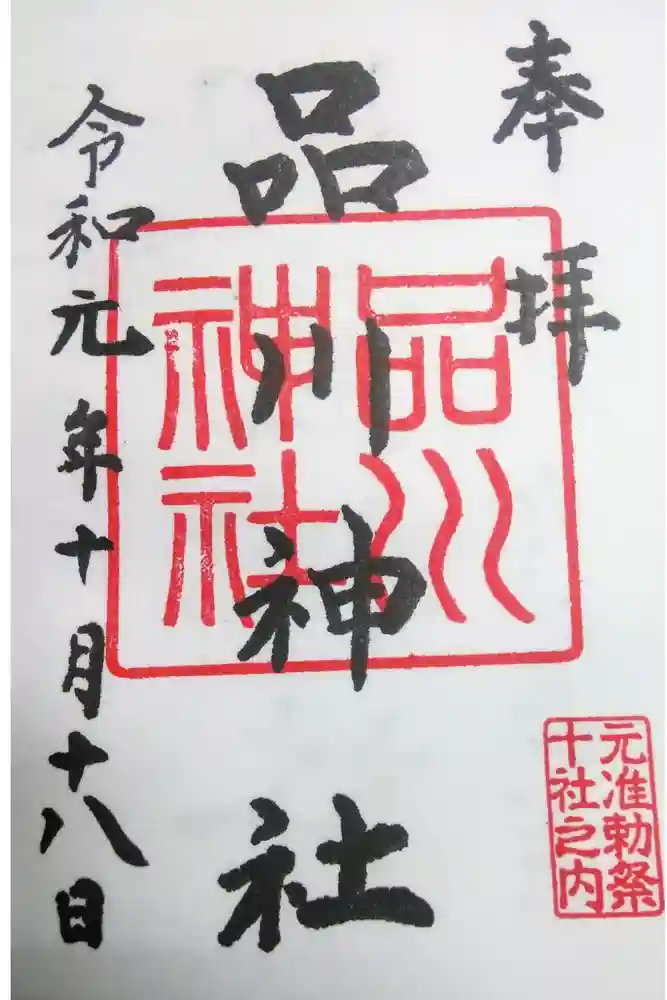 奉拝
品川神社
品川
神社
令和元年十月十八日
元准勅祭
十社之内